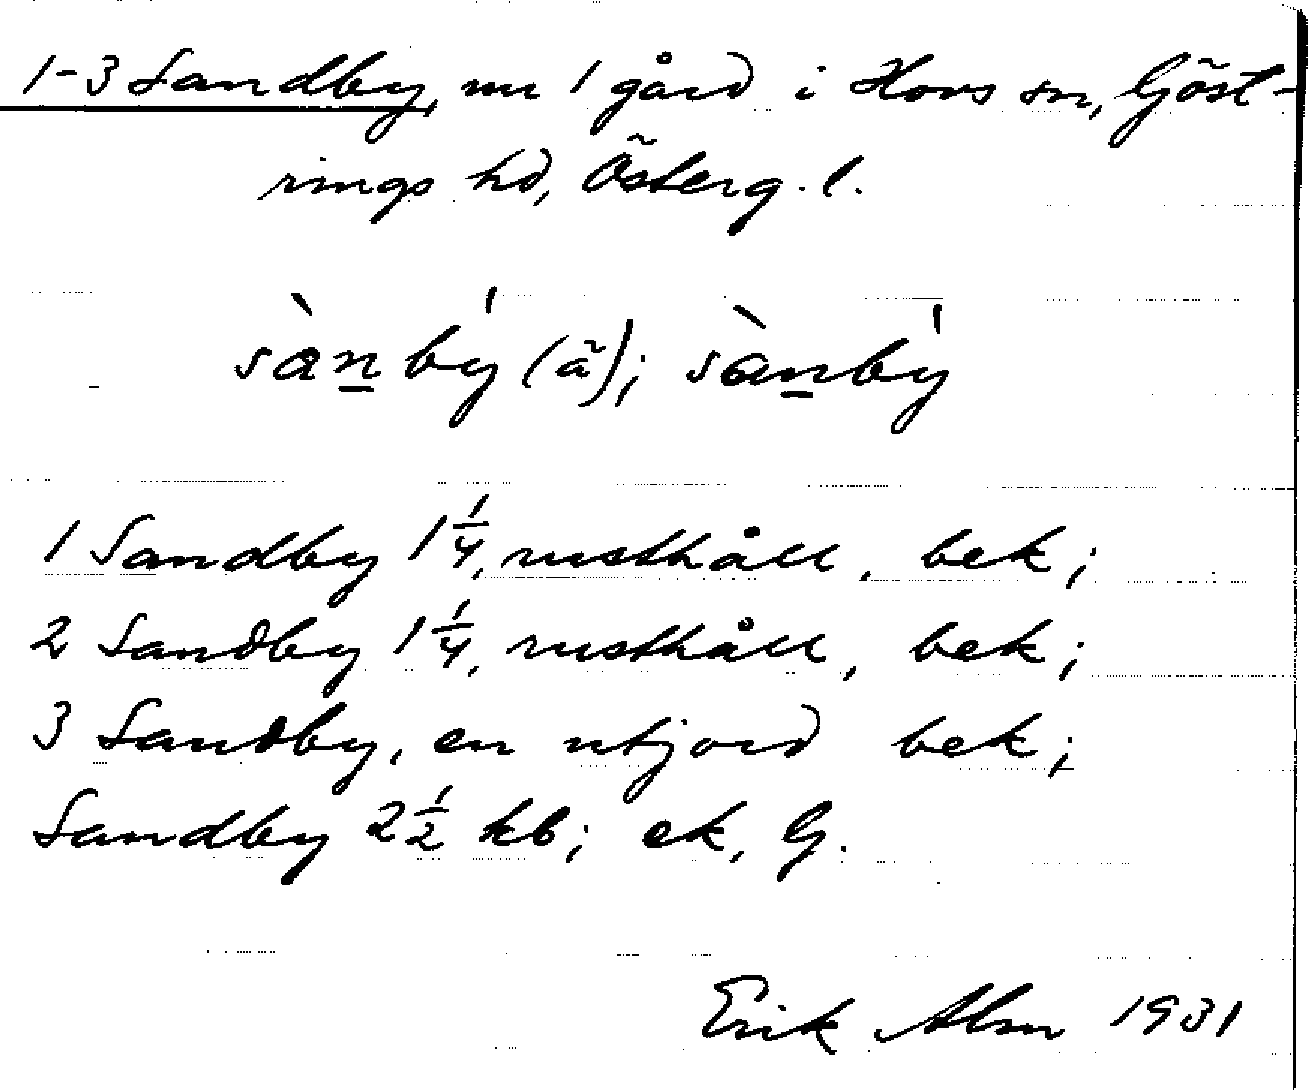 1-3 Sandby, nu 1 gård i Hovs sn, Göst-
rings hd, Österg. l.
sàn̲bý (ã); sàn̲bý
1 Sandby 1 1/4, rusthåll, bek;
2 Sandby 1 1/4, rusthåll, bek;
3 Sandby, en utjord bek;
Sandby 2 1/2 kb; ek, G.
Erik Alm 1931